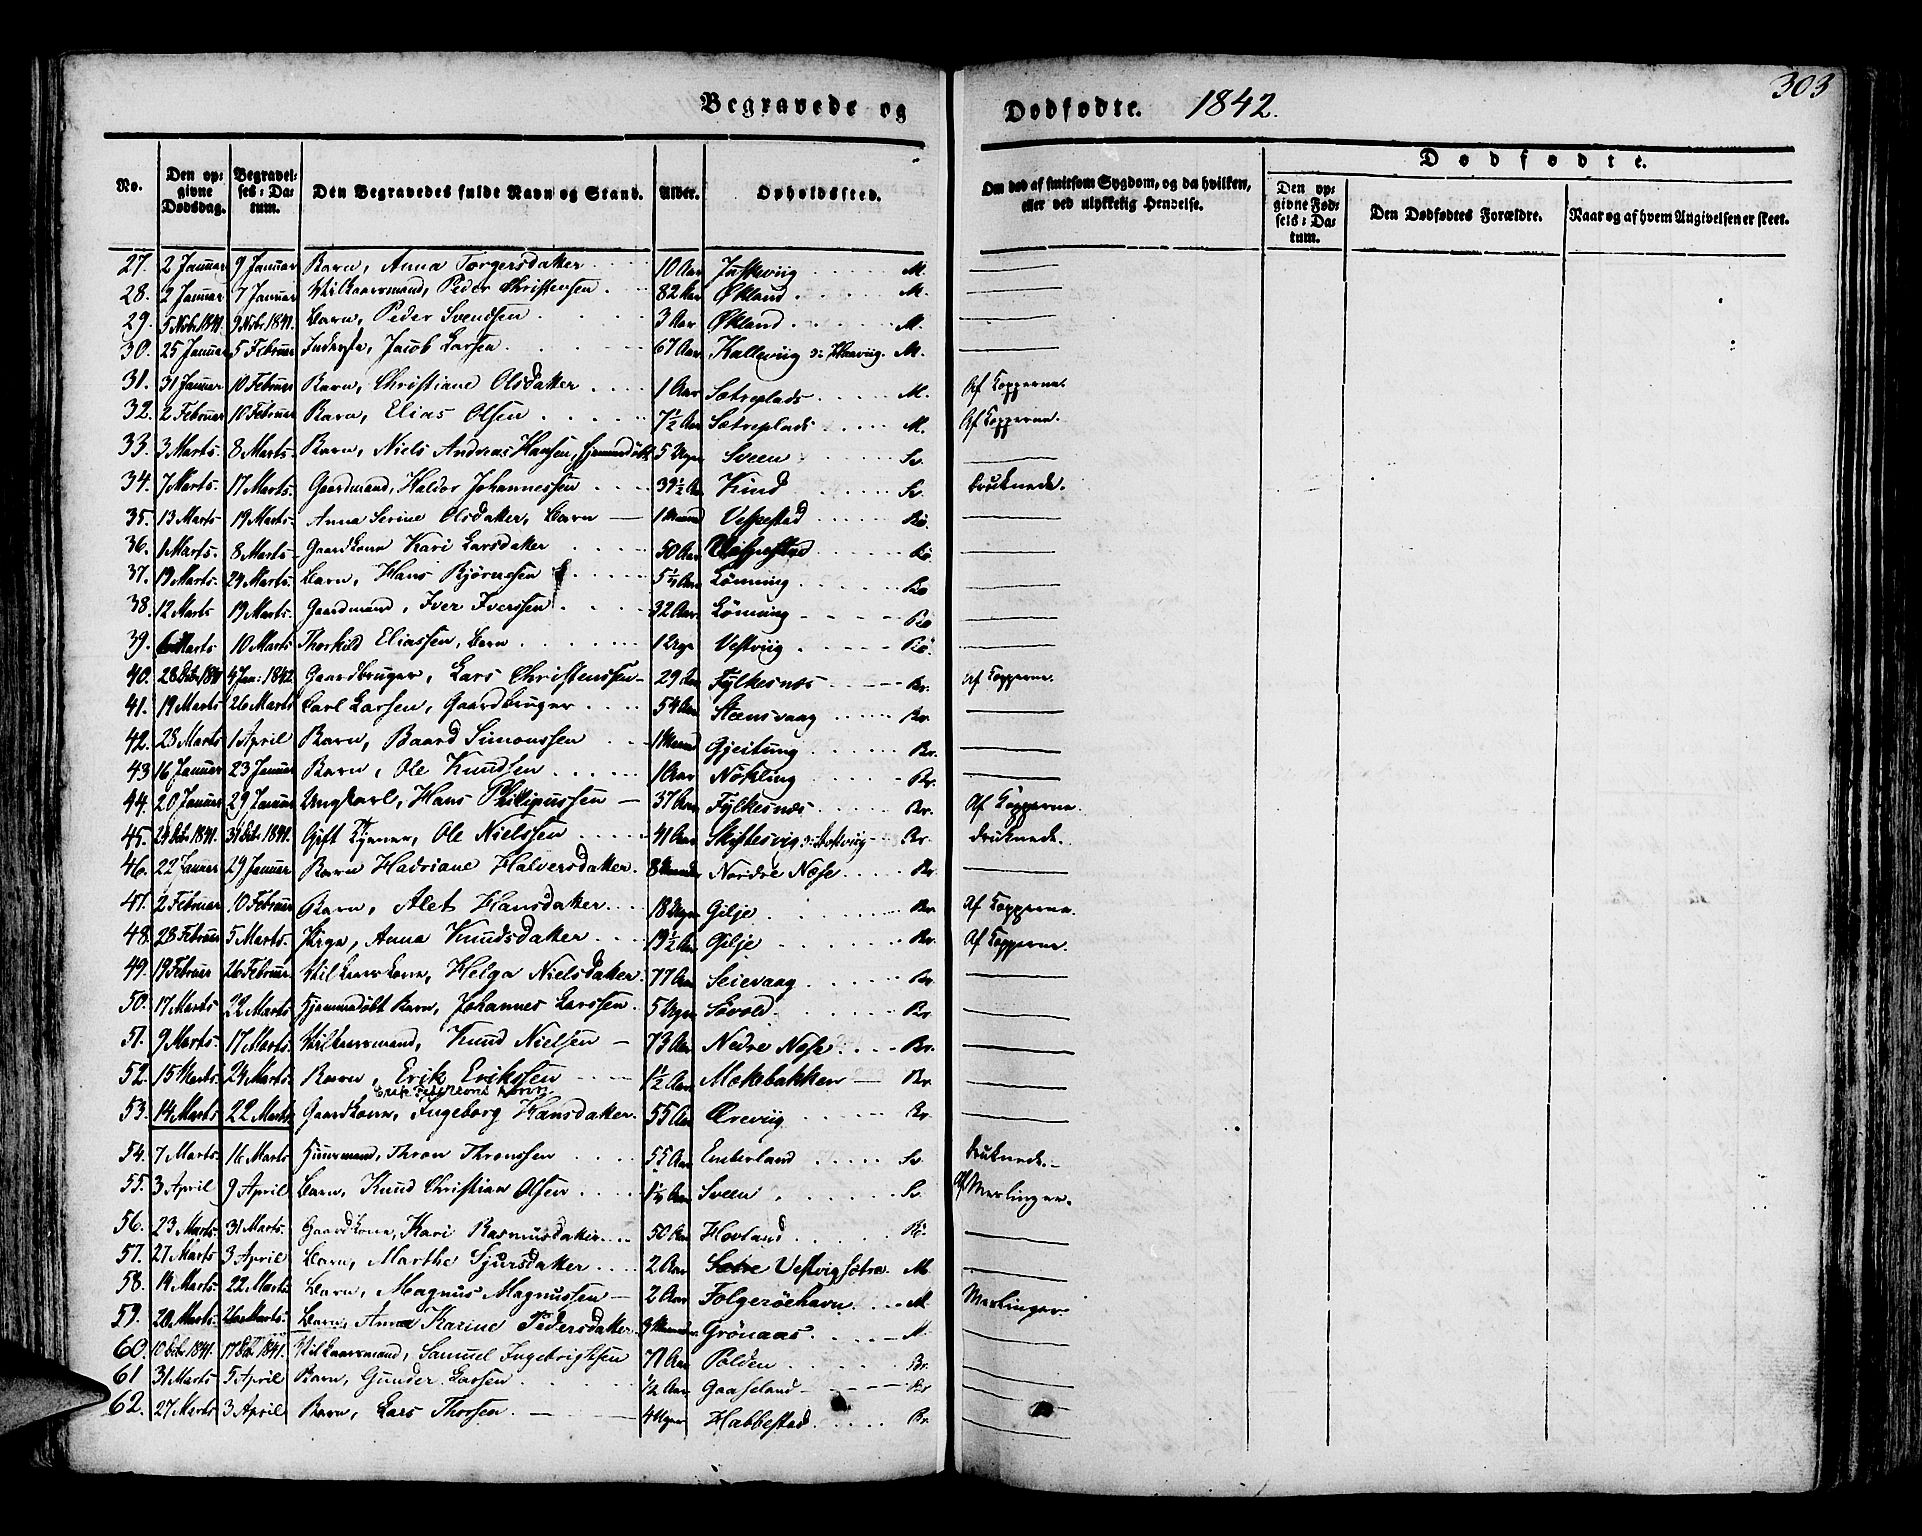 303
Begravede og Dødfødte. 1842.
No. Den opgivne Dødsdag. Begravelses-Datum. Den Begravedes fulde Navn og Stand. Alder. Opholdssted. Om død af smitsom Sygdom, og da hvilken, eller ved ulykkelig Hændelse. Dødfødte. Den opgivne Fødsels-Datum. Den Dødfødtes Forældre. Naar og af hvem Angivelsen er skeet.
27. 2 Januar 9 Januar Barn, Anna Torgersdatter 10 Aar M.
28. 2 Januar 7 Januar Vilkaarsmand, Peder Christensen. 82 Aar Økland. M.
29. 5 Nobr 1841. 9 Nobr. 1841. Barn, Peder Svendsen 3 Aar Økland. M.
30. 25 Januar 5 Februar Inderste, Jacob Larsen 67 Aar Kallevig M.
31. 31 Januar 10 Februar Barn, Christiane Olsdatter 1 Aar Sætreplads M. Af Kopperne.
32. 2 Februar 10 Februar Barn, Elias Olsen 7½ Aar Sætreplads M. Af Kopperne.
33. 3 Marts. 8 Marts. Barn, Niels Andreas Hansen, hjemmedøbt 5 Uger Sveen Sv.
34. 7 Marts. 17 Marts. Gaardmand, Haldor Johannessen 39½ Aar Kind Sv. druknede.
35. 13 Marts 19 Marts. Anna Serine Olsdatter, Barn 1 Maaned Vespestad Bø.
36. 1 Marts. 8 Marts. Gaardkone Kari Larsdatter 50 Aar Vespestad Bø.
37. 19 Marts. 24 Marts. Barn, Hans Bjørnssen Lønning Bø
38. 12 Marts 19 Marts. Gaardmand, Iver Iverssen 32 Aar Lønning Bø
39. 6 Marts 10 Marts Thorkild Eliassen, Barn 1 Uge Vestviig Bø.
40. 28 Debr 1841 4 Jan: 1842. Gaardbruger, Lars Christenssen 29 Aar Fylkesnæs Br. Af Kopperne.
41. 19 Marts 26 Marts Carl Larsen, Gaardbruger 54 Aar Steensvaag Br.
42. 28 Marts 1 April Barn, Baard Simonssen 1 Maaned Gjeitung Br.
43 16 Januar 23 Januar Barn, Ole Knudsen 1 Aar Nøkling Br.
44. 20 Januar 29 Januar Ungkarl, Hans Philipussen 37 Aar Fylkesnæs Br. Af Kopperne.
45. Gift Tjener, Ole Nielssen 41 Aar Br. druknede.
46. 22 Januar 29 Januar Barn Hadriane Halversdatter. 8 Maaneder Nordre Næse. Br.
47. 2 Februar 10 Februar Barn, Alet Hansdatter. 18 Uger Gilje Br. Af Kopperne.
48. 28 Februar 5 Marts. Pige, Anna Knudsdatter 19½ Aar Gilje Br. Af Kopperne.
49. 19 Februar 26 Februar. Vilkaarskone, Helga Nielsdatter. 77 Aar Seievaag Br.
50. 17 Marts 22 Marts Hjemmedøbt Barn, Johannes Larssen 5 Uger Søvold. Br.
51. 9 Marts. 17 Marts. Vilkaarsmand, Knud Nielsen 73 Aar Nedre Næse Br.
52. 15 Marts 24 Marts. Barn, Erik Erikssen 1½ Aar Møkebakken Br.
53. 14 Marts 22 Marts Gaardkone, Ingeborg Hansdatter. 55 Aar Ørevig Br.
54. 7 Marts. 16 Marts Huusmand, Thron Thronssen 55 Aar Emberland Sv. druknede.
55. 3 April 9 April Barn, Knud Christian Olsen Sveen Sv. Af Mæslinger.
56. 23 Marts. 31 Marts. Gaardkone, Kari Rasmusdatter. 50 Aar Hovland Bø.
57. 27 Marts 3 April Barn, Marthe Sjursdatter 2 Aar Sætre Vestvigsøtre. M.
58. 14 Marts. 22 Marts. Barn, Magnus Magnussen 2 Aar Folgerøehavn M. Mæslinger
59. 20 Marts. 26 Marts. Barn, Anna Karine Pedersdatter Grönaas M.
60. 10 Debr 1841. 17 Debr 1841. Vilkaarsmand, Samuel Ingebrigtsen 71 Aar Polden Br.
61 31 Marts 5 April Barn, Gunder Larsen ½ Aar Gaaseland Br
62. 27 Marts 3 April Barn, Lars Thorsen. 4 Uger Habbestad Br.